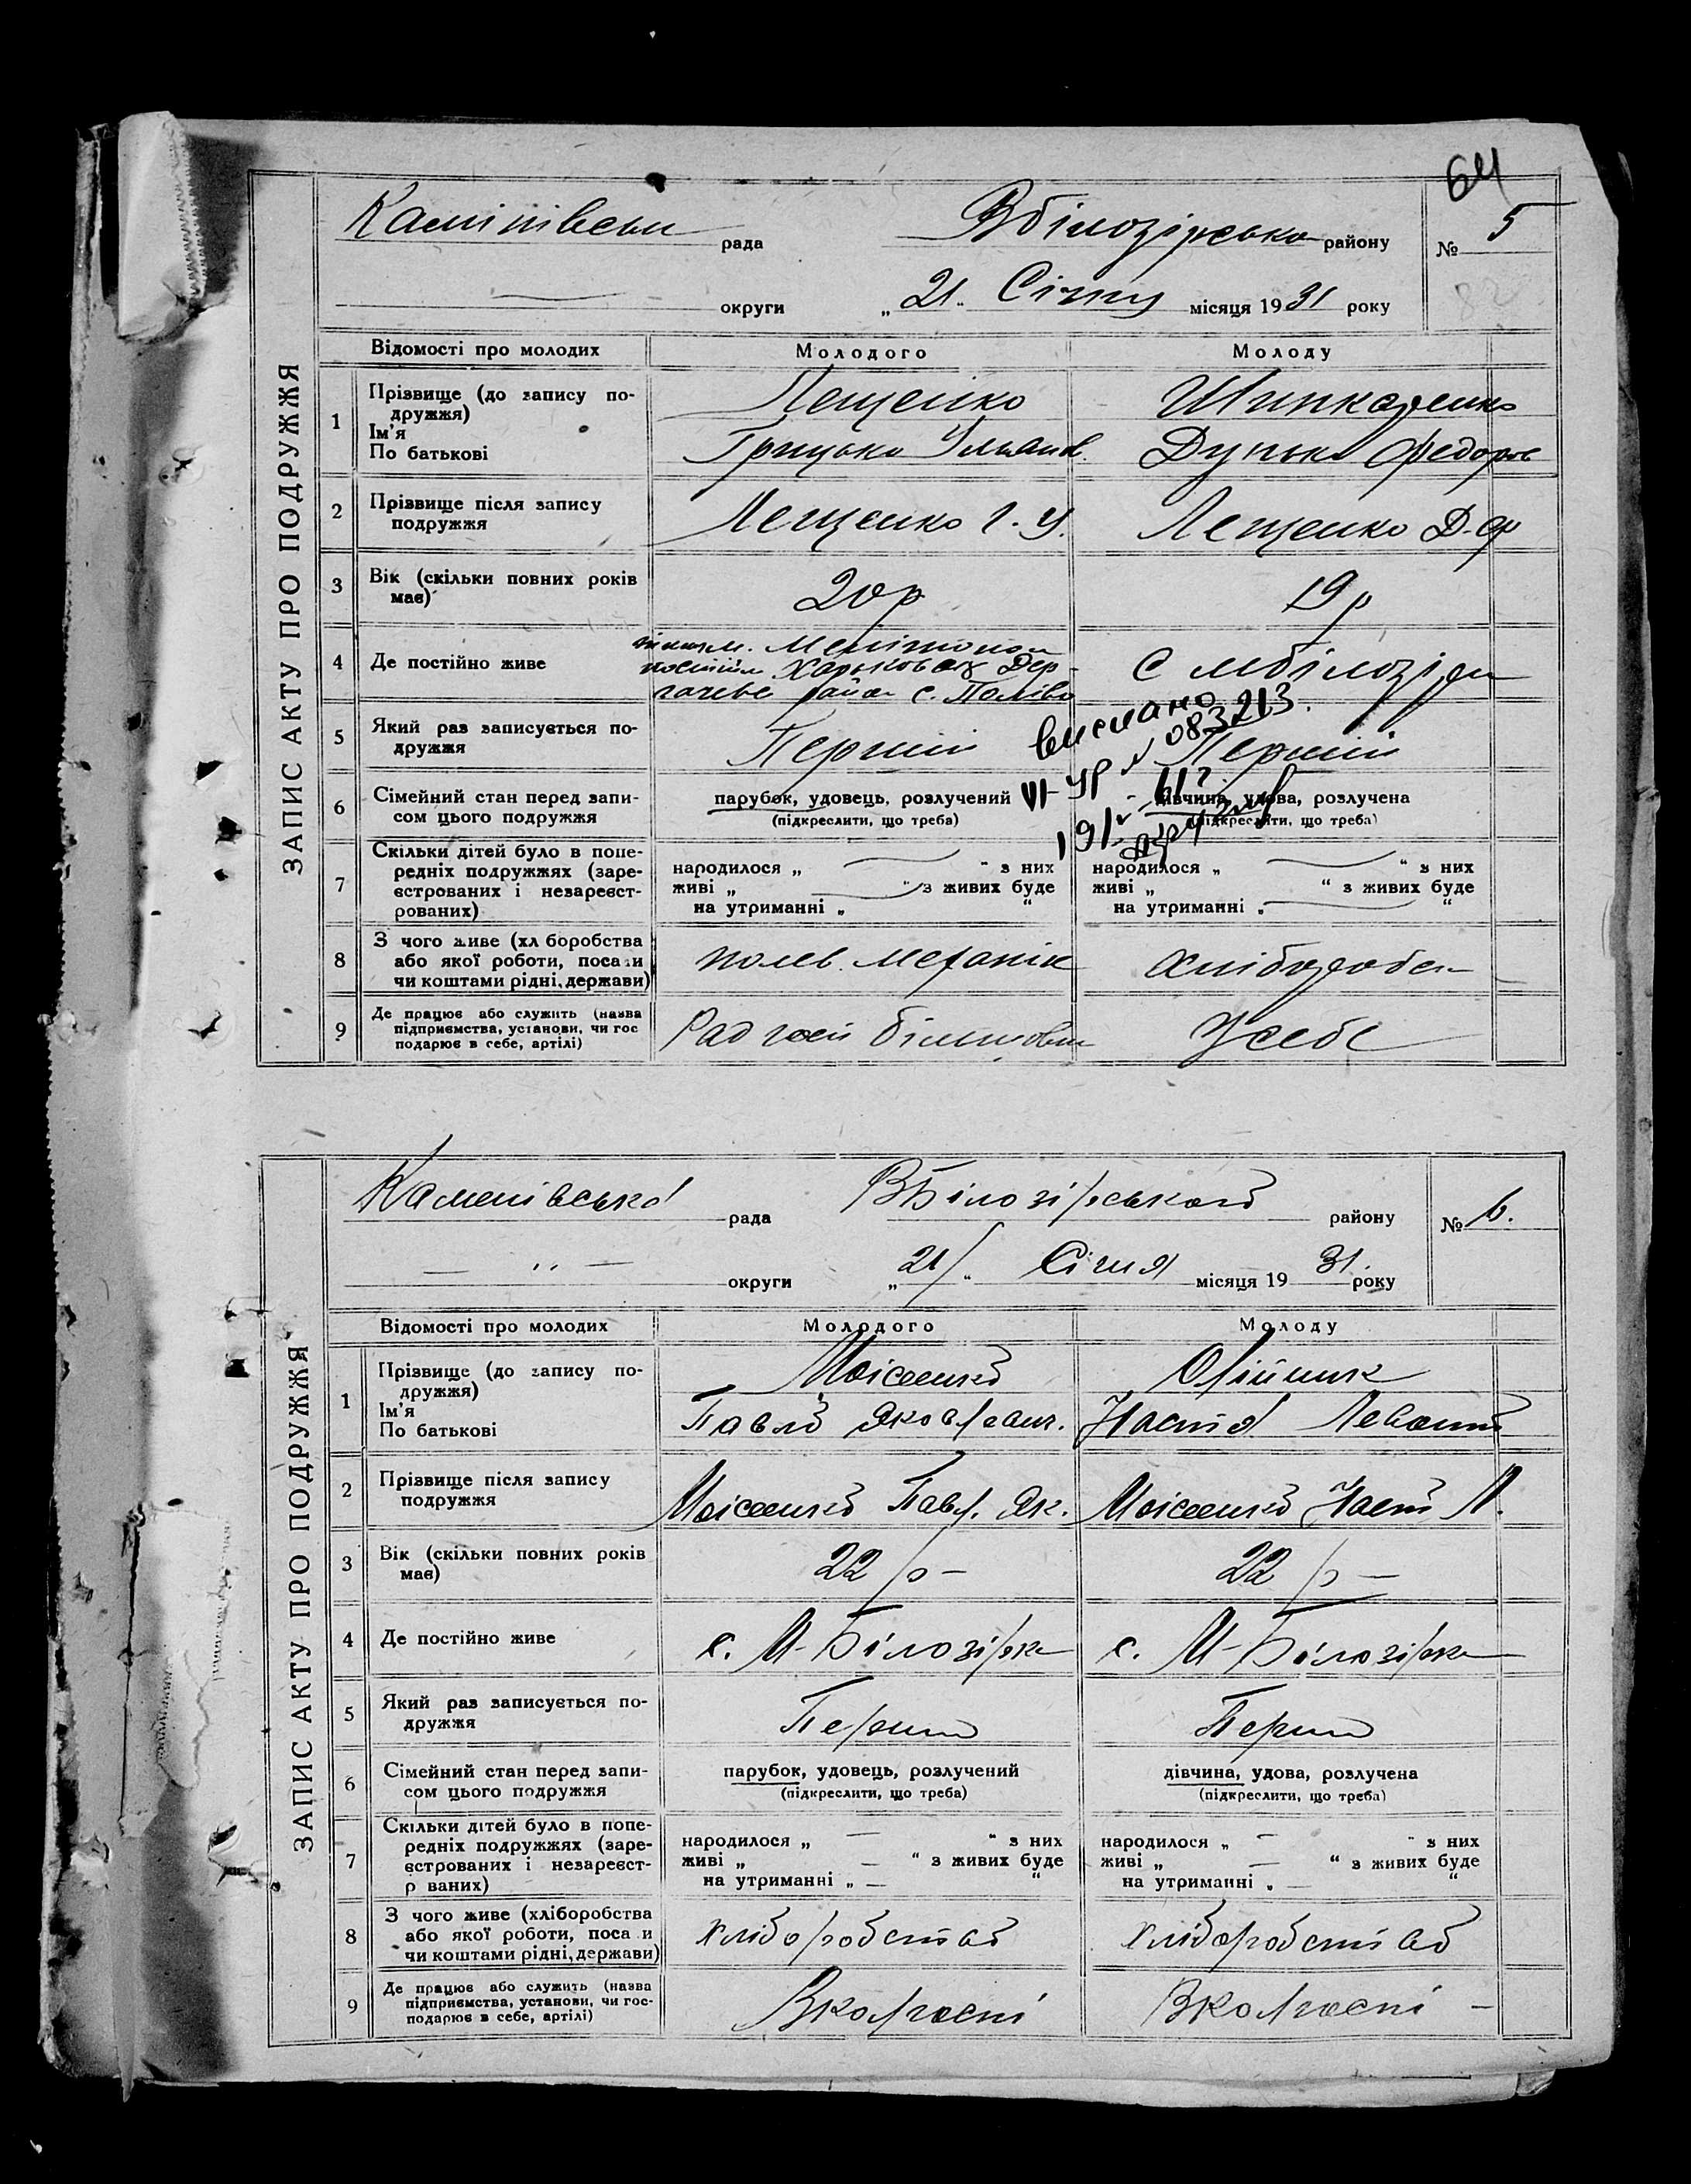 64
ЗАПИС АКТУ ПРО ПОДРУЖЖЯ
рада
району
№ 5
округи „21“ Січня місяця 1931 року
Відомості про молодих
Молодого
Молоду
1 Прізвище (до запису по-
дружжя)
Ім'я
По батькові
Лещенко
Грицько Ульянов.
Шинкаренко
Дунька Федоров
2 Прізвище після запису
подружжя
Лещенко Г. У.
Лещенко Д. Ф
3 Вік (скільки повних років
має)
20 р
19 р
4 Де постійно живе
Мелітополь
Харьковск Дер-
гачевс район с.
с мбілозірки
5 Який раз записується по-
дружжя
Перший
Перший
вислано
VІ-УР № 083213.
191 - 61 г.
6 Сімейний стан перед запи-
сом цього подружжя
парубок, удовець, розлучений
(підкреслити, що треба)
дівчина, удова, розлучена
(підкреслити, що треба)
7 Скільки дітей було в попе-
редніх подружжях (заре-
єстрованих і незареєст-
рованих)
народилося „ — “ з них
живі „ — “ з живих буде
на утриманні „ “
народилося „ — “ з них
живі „ “ з живих буде
на утриманні „ — “
8 З чого живе (хл боробства
або якої роботи, посади
чи коштами рідні, держави)
полев. механік
хлібороб
9 Де працює або служить (назва
підприємства, установи, чи гос
подарює в себе, артілі)
Рад госп
У себе
ЗАПИС АКТУ ПРО ПОДРУЖЖЯ
Каменівська рада
ВБілозірського району
№ 6.
— „ — округи „21“ Січня місяця 1931. року
Відомості про молодих
Молодого
Молоду
1 Прізвище (до запису по-
дружжя)
Ім'я
По батькові
Моісеенко
Павло Яковлевич.
Олійник
Настя
2 Прізвище після запису
подружжя
Моісеенко Павл. Як.
Моісеенко Наст Л.
3 Вік (скільки повних років
має)
22 р –
22 р –
4 Де постійно живе
с. М-Білозірка
с. М-Білозірка
5 Який раз записується по-
дружжя
Перший
Перший
6 Сімейний стан перед запи-
сом цього подружжя
парубок, удовець, розлучений
(підкреслити, що треба)
дівчина, удова, розлучена
(підкреслити, що треба)
7 Скільки дітей було в попе-
редніх подружжях (заре-
єстрованих і незареєст-
р ваних)
народилося „ — “ з них
живі „ — “ з живих буде
на утриманні „ — “
народилося „ — “ з них
живі „ — “ з живих буде
на утриманні „ — “
8 З чого живе (хліборобства
або якої роботи, поса и
чи коштами рідні, держави)
хліборобство
хліборобство
9 Де працює або служить (назва
підприємства, установи, чи гос-
подарює в себе, артілі)
В колгоспі
В колгоспі –